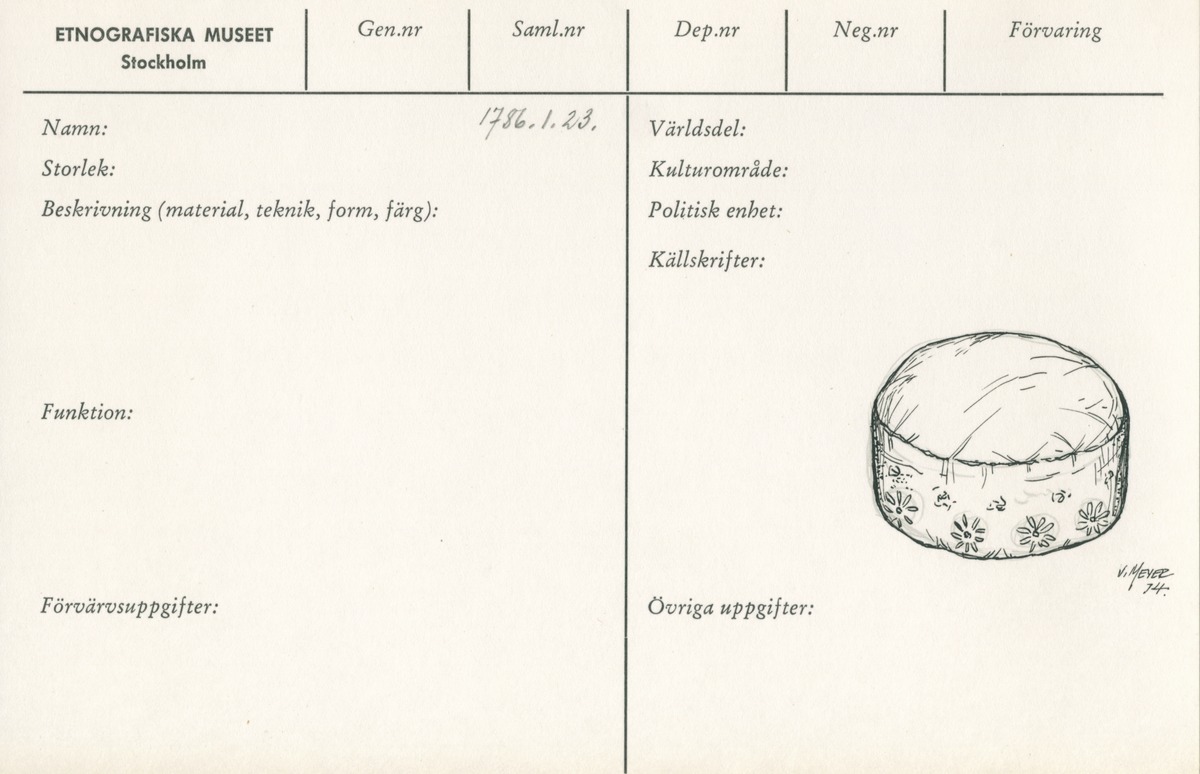 ETNOGRAFISKA MUSEET
Stockholm
Gen.nr
Saml.nr
Dep.nr
Neg.nr
Förvaring
1786.1.23.
Namn:
Storlek:
Beskrivning (material, teknik, form, färg):
Funktion:
Förvärvsuppgifter:
Världsdel:
Kulturområde:
Politisk enhet:
Källskrifter:
V. MEYER
74.
Övriga uppgifter: